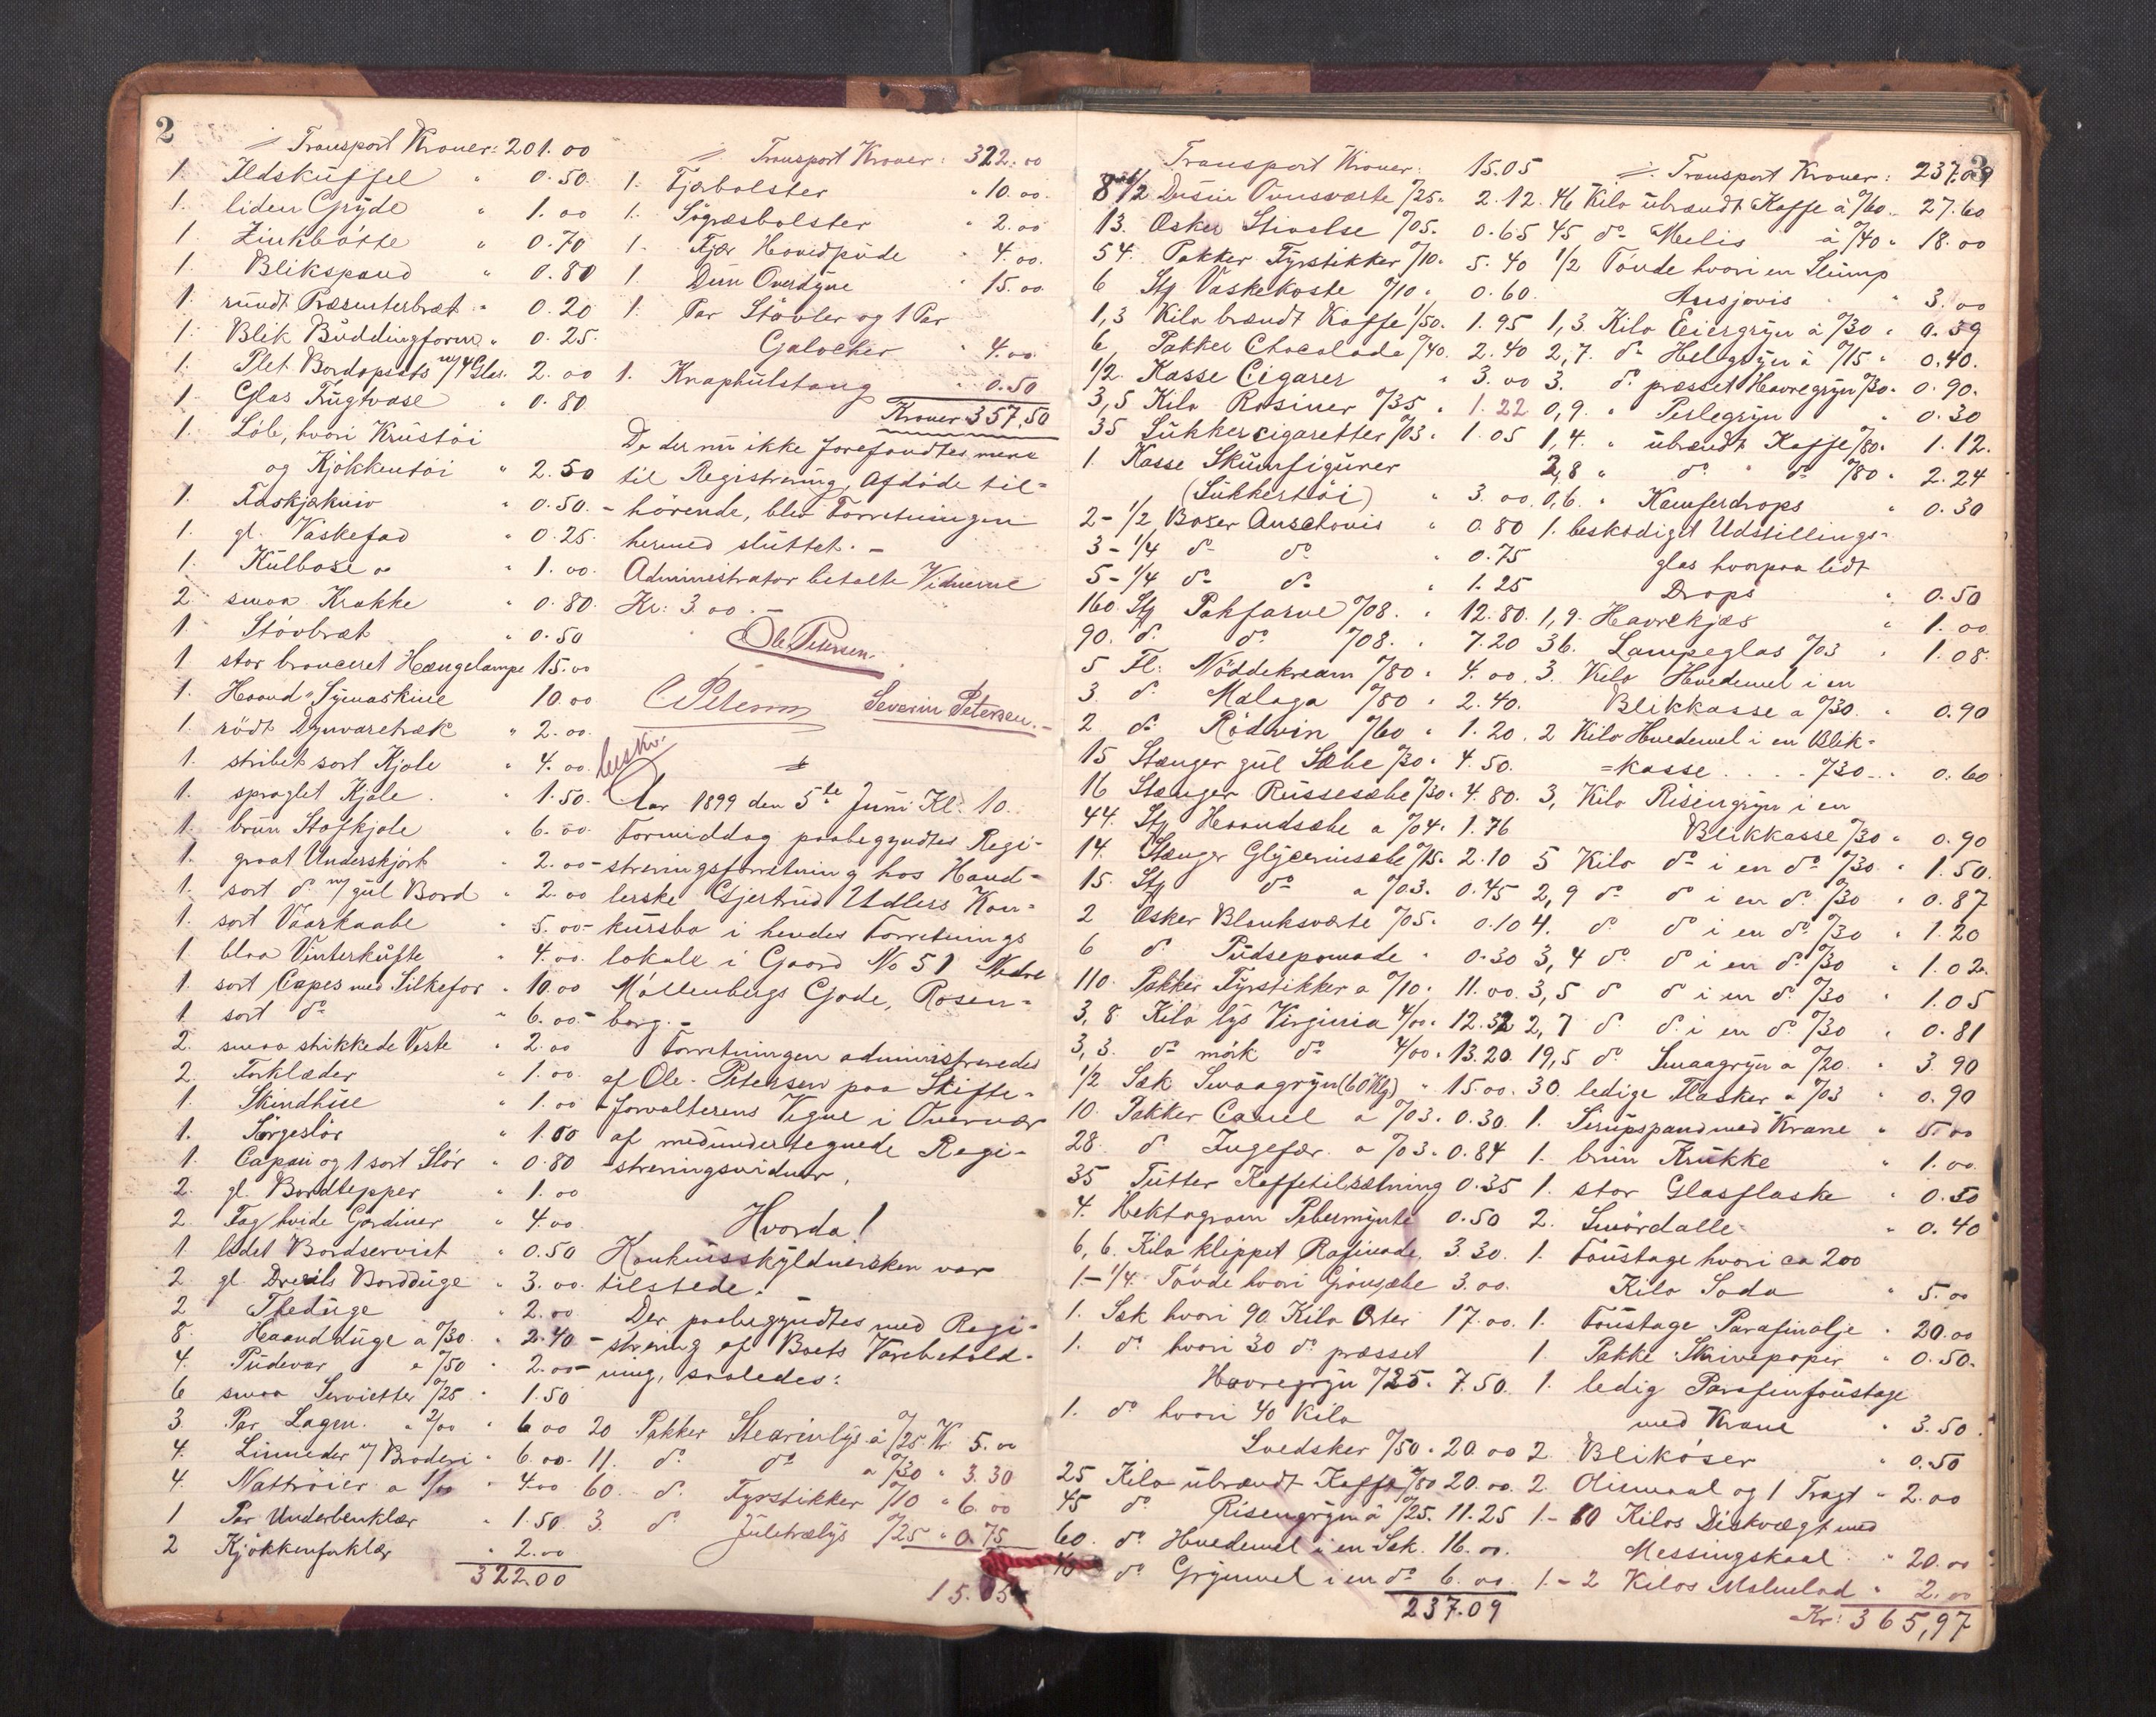 2
Transport Kroner: 201.00
1. Ildskuffel " 0.50.
1. liden Gryde " 1.00
1. Zinkbøtte " 0.70
1. Blikspand " 0.80
1. rundt Præsenterbræt " 0.20
1. Blik Buddingform " 0.25.
1. Plet Bordopsats m/4 Glas. 2.00
1. Glas Frugtvase " 0.80
1. Løb, hvori Krustøi
og Kjøkkentøi " 2.50
1. Faskjækniv " 0.50.
1. gl. Vaskefad " 0.25.
1. Kulbox " 1.00.
2. smaa Krakke " 0.80.
1. Støvbræt " 0.50
1. stor bronceret Hængelampe 15.00
1. Haand-Symaskine 10.00
1. rødt Dynvaretræk " 2.00.
1. stribet sort Kjole " 4.00.
1. spraglet Kjole. " 1.50.
1. brun Stofkjole " 6.00.
1. graat Underskjørt " 2.00
1. sort do m/ gul Bord " 2.00
1. sort Vaarkaabe " 5.00
1. blaa Vinterkufte " 4.00.
1. sort Capes med Silkefor " 10.00
1. sort do " 6.00.
2. smaa strikkede Veste " 2.00
2. Forklæder " 1.00.
1. Skindhue " 1.00
1. Sørgeslør " 1.00
1. Capsin og 1 sort Slør " 0.80
2. gl. Bordtepper " 1.00
2. Fag hvide Gardiner " 4.00.
1. ledet Bordserviet " 0.50
2. gl. Dreiils Bordduge " 3.00.
2 Theduge " 2.00.
8. Haandduge a 0/30. " 2.40
4. Pudevar a 0/50 " 2.00
6 smaa Servietter 0/25 " 1.50
3 Par Lagen. a 2/00 " 6.00
4. Linneder m/ Broderi " 6.00.
4. Nattrøier a 1/00 " 4.00
1 Par Underbenklær " 1.50.
2 Kjøkkenforklær " 2.00
322.00
Transport Kroner: 322.00
1. Fjærbolster " 10.00.
1. Søgræsbolster " 2.00
1. Fjær Hovedpude " 4.00.
1. Dun Overdyne " 15.00.
1. Par Støvler og 1 Par
Galocher " 4.00.
1. Knaphulstang " 0.50
Kroner 357,50
Da der nu ikke forefandtes mere
til Registrering, Afdøde til=
hørende, blev Forretningen
hermed sluttet. –
Administrator betalte Vidnerne
Kr: 3.00. –
Ole Petersen.
C Petersen Severin Petersen. –
beskr.
Aar 1899 den 5te Juni Kl: 10.
Formiddag paabegyndtes Regi=
streringsforretning hos Hand=
lerske Gjertrud Udlers Kon=
kursbo i hendes Forretnings
lokale i Gaard No 51 Nedre
Møllenbergs Gade, Rosen=
borg. –
Forretningen administreredes
af Ole Petersen paa Skifte=
forvalterens Vegne i Overvær
af medundertegnede Regi=
streringsvidner.
Hvorda!
Konkursskyldnersken var
tilstede.
Der paabegyndtes med Regi=
strering af Boets Varebehold=
ning, saaledes:
20 Pakker Stearinlys á 0/25 Kr 5.00
11. do do a 0/30 " 3.30
60. do Fyrstikker 0/10 " 6.00
3. do Juletrælys 0/25 " 0.75
15.05
3
Transport Kroner: 15.05
8 1/2 Dusin Ovnsværte 0/25. 2.12.
13. Æsker Stivelse 0/05. 0.65
54. Pakker Fyrstikker 0/10. 5.40
6 Stk Vaskekoste 0/10. 0.60.
1,3 Kilo brændt Kaffe 1/50. 1.95
6 Pakker Chocolade 0/40. 2.40
1/2. Kasse Cigarer " 3.00
3,5 Kilo Rosiner 0/35 " 1.22
35 Sukkercigaretter 0/03. 1.05
1. Kasse Skumfigurer
(Sukkertøi) " 3.00.
2-1/2 Boxer Anschovis " 0.80
3-1/4 do do " 0.75
5-1/4 do do " 1.25
160 Stk Pakfarve 0/08. " 12.80.
90. do do 0/08. " 7.20
5 Fl: Nøddekream 0/80 " 4.00.
3. do Malaga 0/80 " 2.40.
2 do Rødvin 0/60 " 1.20.
15 Stænger gul Sæbe 0/30. 4.50.
16 Stænger Russesæbe 0/30. 4.80.
44. Stk Haandsæbe a 0/04. 1.76
14. Stænger Glycerinsæbe 0/15. 2.10
15. Stk do a 0/03. 0.45
2 Æsker Blanksværte 0/05. 0.10
6 do Pudsepomade " 0.30
110. Pakker Fyrstikker a 0/10. 11.00.
3,8 Kilo lys Virginia 4/00. 12.32
3,3. do mørk do 4/00. 13.20.
1/2 Sæk Smaagryn (60 Klg) " 15.00.
10. Pakker Caneel a 0/03. 0.30.
28. do Ingefær a 0/03. 0.84
35 Tutter Kaffetilsætning 0.35
4. Hektogram Pebermynte 0.50
6,6. Kilo klippet Rafinade. 3.30.
1-1/4. Tønde hvori Grønsæbe 3.00.
1. Sæk hvori 90. Kilo Erter 17.00.
1. do hvori 30 do presset
Havregryn 0/25. 7.50.
1. do hvori 40 Kilo
Svedsker 0/50. 20.00
25 Kilo ubrændt Kaffe 0/80 20.00.
45 do Risengryn á 0/25. 11.25
60. do Hvedemel i en Sæk. 16.00.
40 do Grynmel i en do 6.00.
237.09
Transport Kroner: 237.09
46 Kilo ubrændt Kaffe á 0/60.. 27.60
45 do Melis á 0/40. 18.00
1/2 Tønde hvori en Slump
Ansjovis " 3.00
1,3. Kilo Eiergryn á 0/30 " 0.39
2,7. do Helegryn á 0/15 " 0.40.
3. do præsset Havregryn 0/30. 0.90.
0,9. " Perlegryn " 0.30
1,4. " ubrændt Kaffe 0/80. 1.12.
2,8 " do " do 0/80 " 2.24
0,6. " Kamferdrops " 0.30
1. beskadiget Udstillings=
glas hvorpaa lidt
Drops " 0.50
1,9. Havrekjæs " 1.00
36. Lampeglas 0/03 " 1.08.
3. Kilo Hvedemel i en
Blikkasse a 0/30. " 0.90
2 Kilo Hvedemel i en Blik=
=kasse . . . . 0/30 . . . 0.60
3, Kilo Risengryn i en
Blikkasse 0/30 " 0.90
5 Kilo do i en do 0/30. " 1.50.
2,9 do do i en do 0/30 " 0.87
4. do do i en do 0/30 " 1.20
3,4 do do i en do 0/30 " 1.02.
3,5 do do i en do 0/30 " 1.05
2,7 do do i en do 0/30 " 0.81
19,5 do Smaagryn a 0/20. " 3.90
30. ledige Flasker a 0/03 " 0.90
1. Sirupspand med Krane " 5.00
1. brun Krukke " 1.00.
1. stor Glasflaske " 0.50
2. Smørdalle " 0.40
1. Foustage hvori ca 200
Kilo Soda " 5.00
1. Foustage Parafinolje " 20.00
1. Pakke Skrivepapir " 0.50.
1. ledig Parafinfoustage
med Krane " 3.50.
2. Blikøser " 0.50
2. Oliemaal og 1 Tragt " 2.00
1-10 Kilos Diskvægt med
Messingskaal " 20.00
1-2 Kilos Malmlod " 2.00
Kr: 365,97